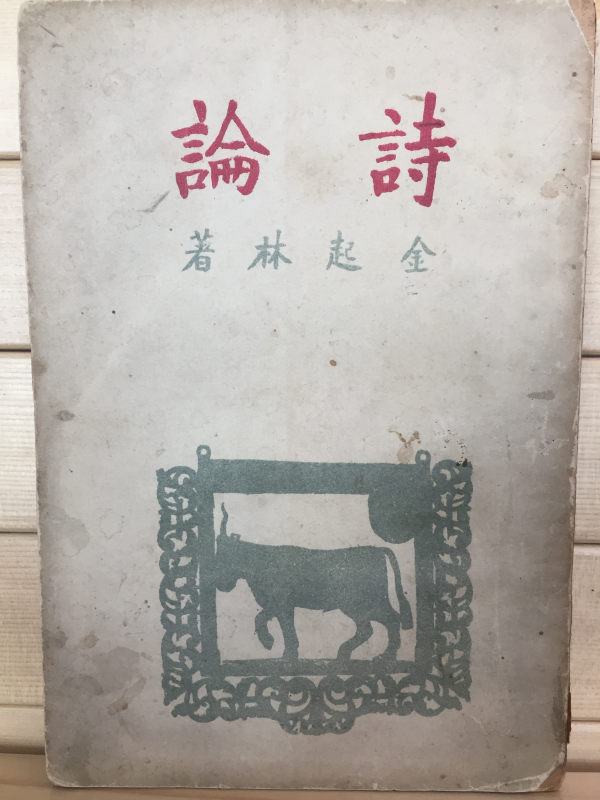 詩論
金起林著